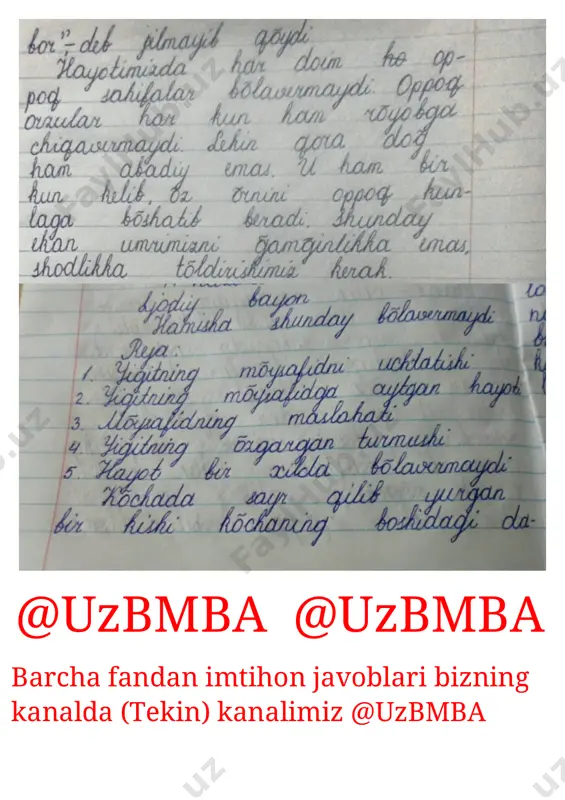 bor"- deb jilmayib qōydi
Hayotimizda har doim ho op-
poq sahifalar bōlavermaydi. Oppoq
orzular har kun ham rōyobga
chiqavermaydi. Lekin qora dog
ham abadiy emas. U ham bir
kun kelib, ōz ōrnini oppoq kun-
laga bōshatib beradi. Shunday
ekan umrimizni ḡamginlikka emas,
shodlikka tōldirishimiz kerak.
Ijodiy bayon
Hamisha shunday bōlavermaydi
Reja:
1. Yigitning mōysafidni uchlatishi
2. Yigitning mōysafidga aytgan hayot
3. Mōysafidning maslahati
4. Yigitning ōzgargan turmushi
5. Hayot bir xilda bōlavermaydi
Kōchada sayr qilib yurgan
bir kishi kōchaning boshidagi da-
@UzBMBA @UzBMBA
Barcha fandan imtihon javoblari bizning
kanalda (Tekin) kanalimiz @UzBMBA
FaylHub.uz